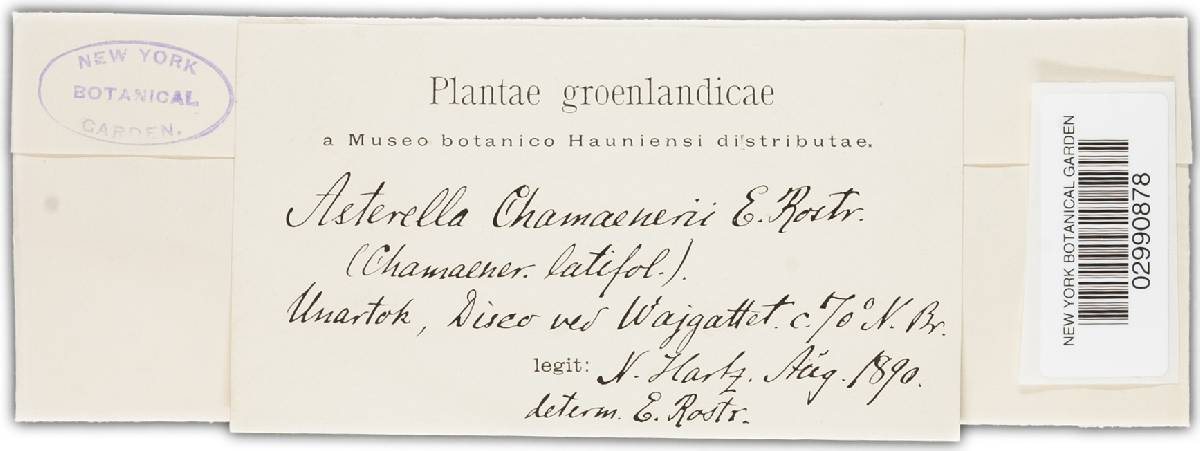 NEW YORK
BOTANICAL
GARDEN.
Plantae groenlandicae
a Museo botanico Hauniensi distributae.
Asterella Chamaenerii E. Rostr.
(Chamaener. latifol.).
Unartok, Disco ved Wajgattet. c. 70° N. Br.
legit: N. Hartz. Aug. 1890.
determ. E. Rostr.
NEW YORK BOTANICAL GARDEN
02990878